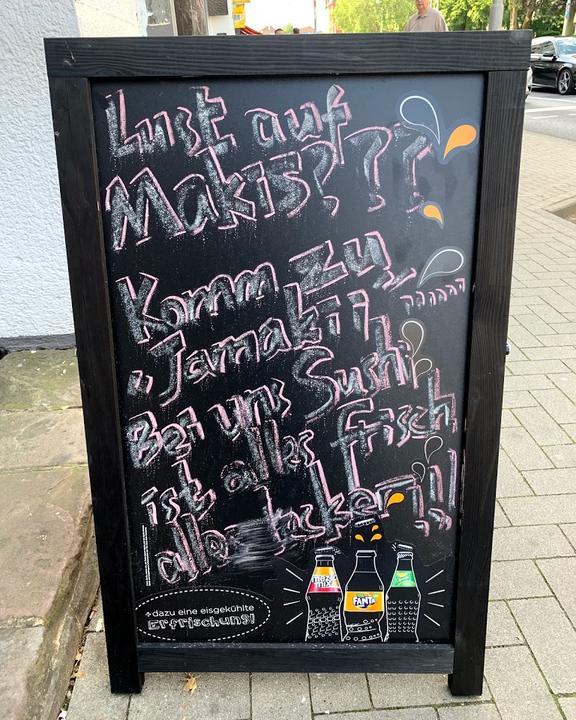 Lust auf
Makis???
Komm zu
"Jamakii"
Bei uns Sushi
ist alles frisch
alles lecker!!!
+dazu eine eisgekühlte
Erfrischung!
mezzo mix
FANTA